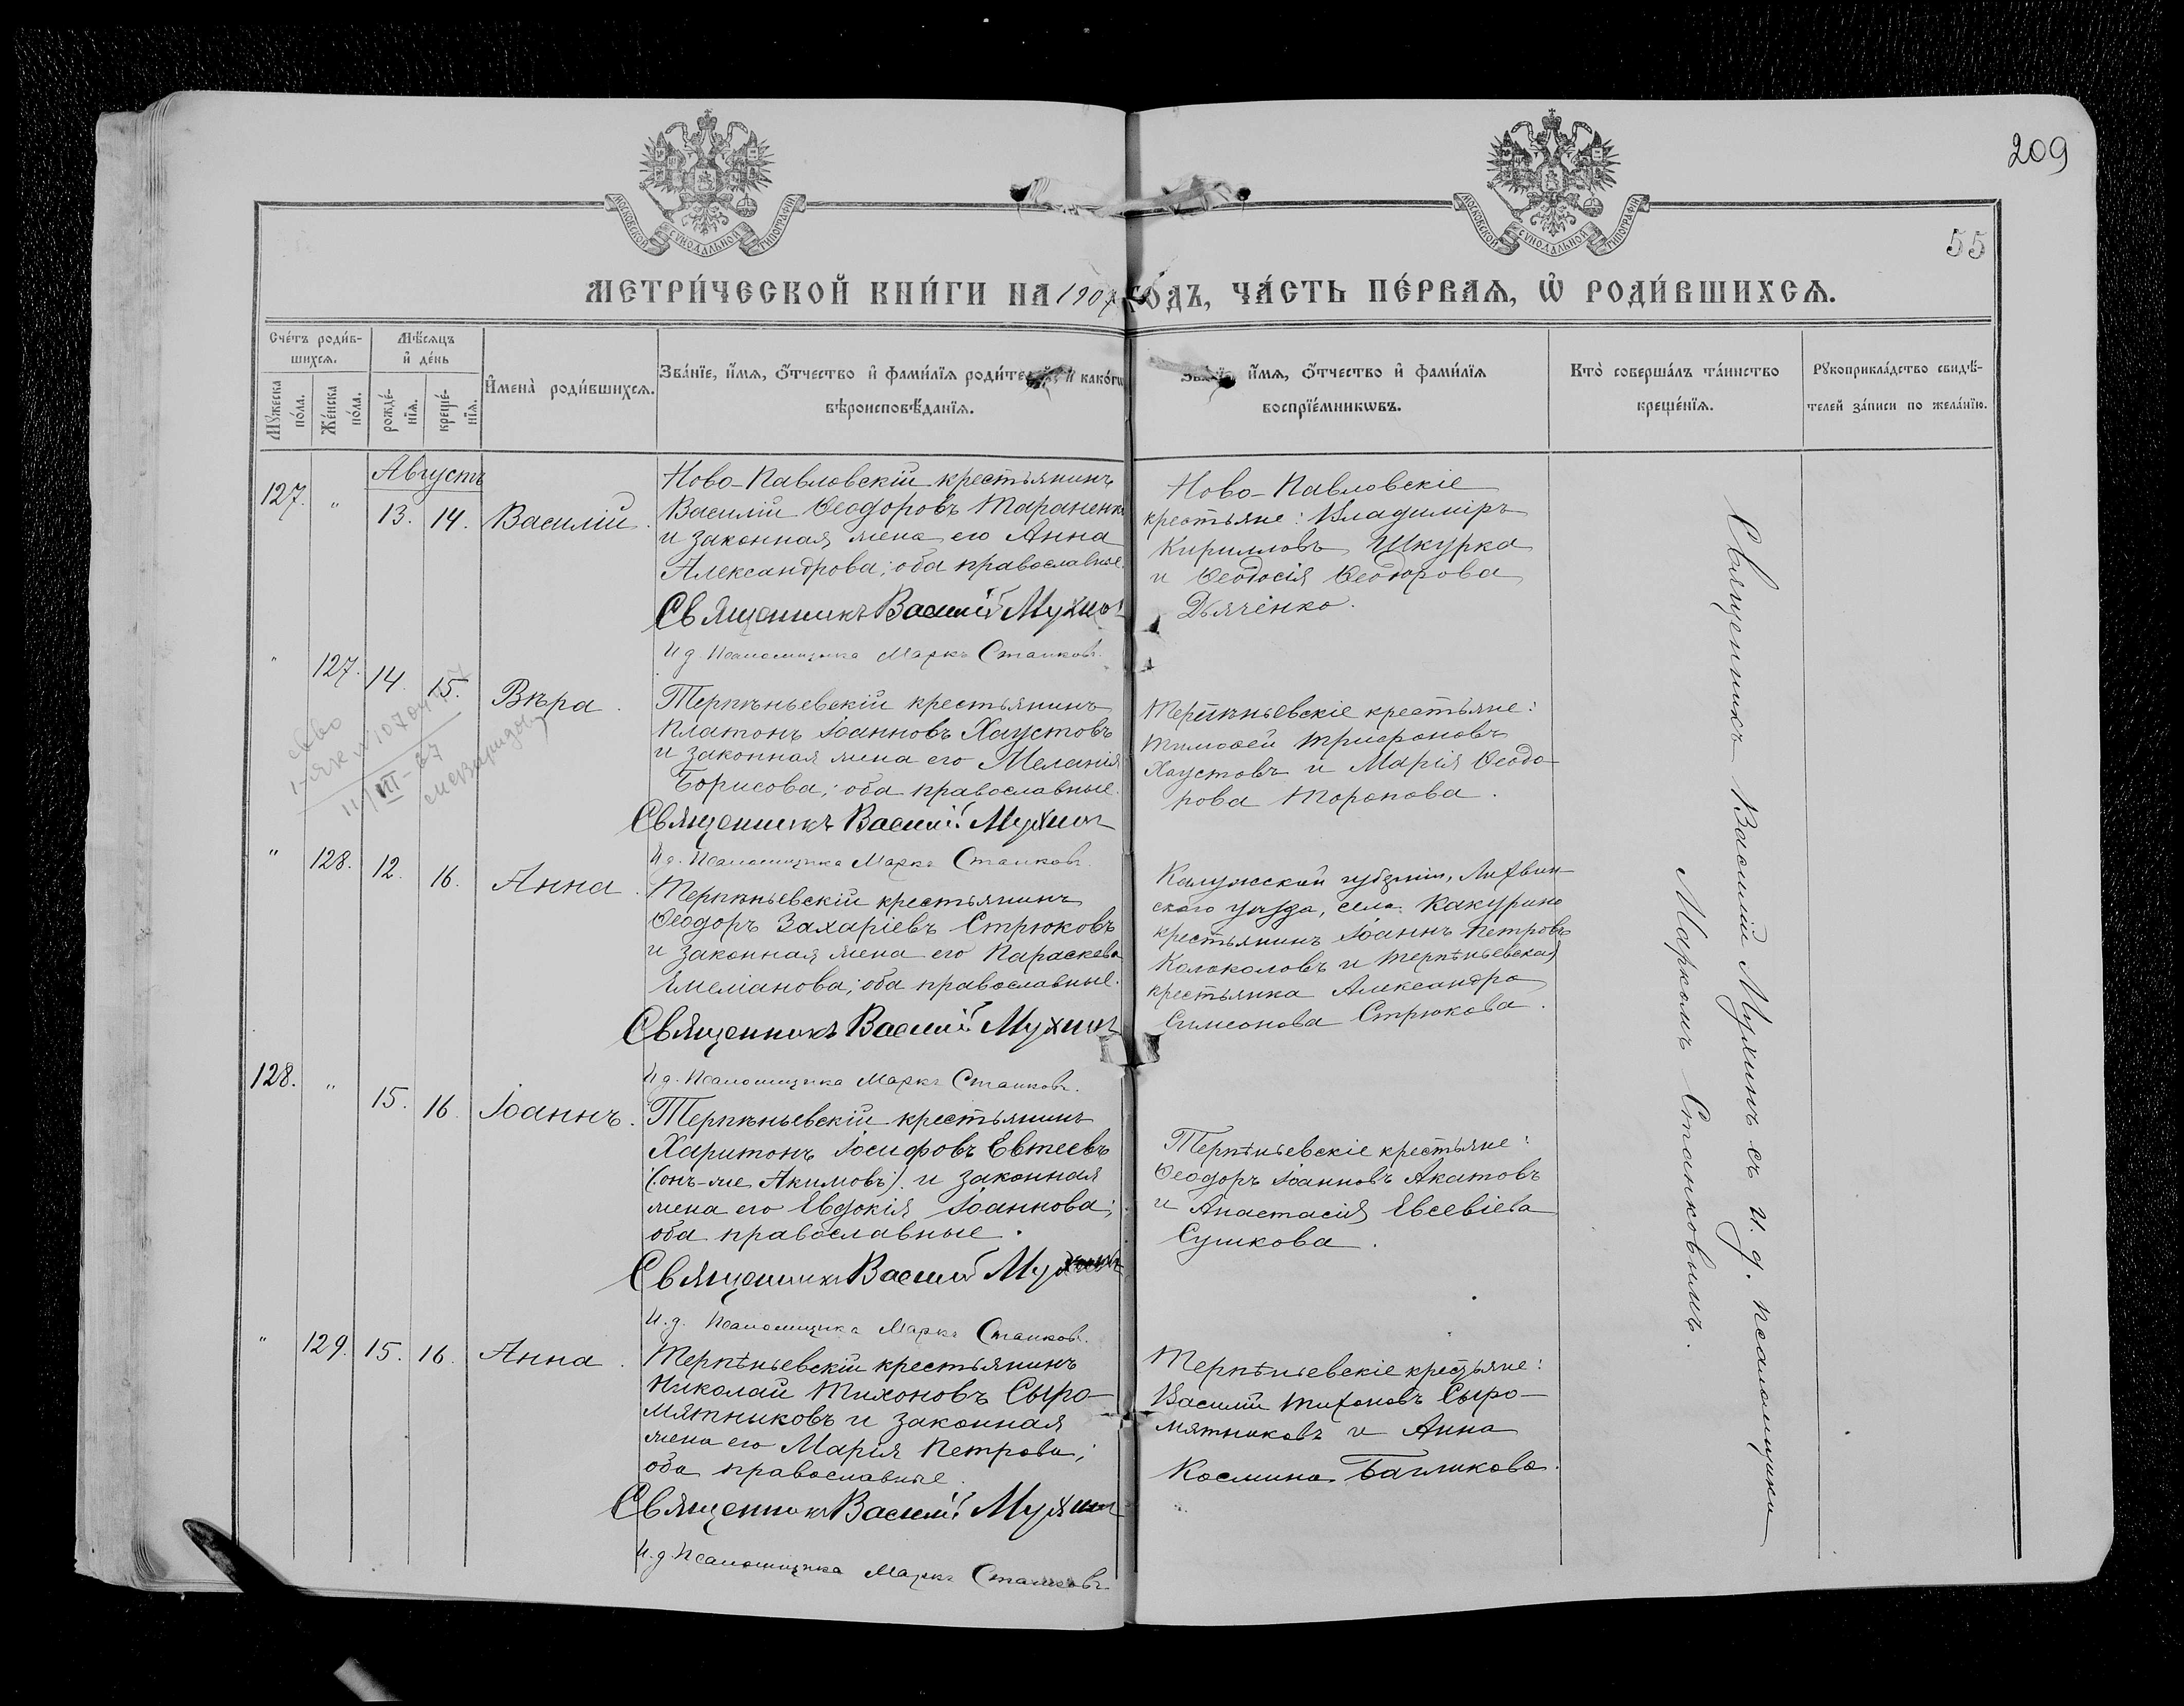 209
55
МОСКОВСКОЙ СѴНОДАЛЬНОЙ ТИПОГРАФІИ
МОСКОВСКОЙ СѴНОДАЛЬНОЙ ТИПОГРАФІИ
МЕТРИ́ЧЕСКОЙ КНИ́ГИ НА 1907 ГО́ДЪ, ЧА́СТЬ ПЕ́РВАѦ, Ѽ РОДИ́ВШИХСѦ.
Сче́тъ роди́в-
шихсѧ.
Мѣ́сѧцъ
и҆ де́нь
Мꙋ́жеска
по́ла.
Же́нска
по́ла.
рожде́-
нїѧ.
креще́-
нїѧ.
И҆мена̀ роди́вшихсѧ.
Зва́нїе, и҆́мѧ, ѻ҆́тчество и҆ фами́лїѧ роди́телей, и҆ како́гѡ
вѣроисповѣ́данїѧ.
Зва́нїе, и҆́мѧ, ѻ҆́тчество и҆ фами́лїѧ
воспрїе́мникѡвъ.
Кто̀ соверша́лъ та́инство
креще́нїѧ.
Рꙋкоприкла́дство свидѣ́-
телей за́писи по жела́нїю.
Августъ
127. " 13. 14. Василій.
Ново-Павловскій крестьянинъ
Василій Ѳеодоровъ Тараненко
и законная жена его Анна
Александрова; оба православные.
Священникъ Василій Мухинъ
И д. Псаломщика Маркъ Станковъ.
Ново-Павловскіе
крестьяне: Владиміръ
Кирилловъ Шкурка
и Ѳеодосія Ѳеодорова
Дьяченко.
" 127. 14. 15. Вѣра.
Терпѣньевскій крестьянинъ
Платонъ Іоанновъ Хаустовъ
и законная жена его Меланія
Борисова; оба православные.
Священникъ Василій Мухинъ
И д. Псаломщика Маркъ Станковъ.
Терпѣньевскіе крестьяне:
Тимоѳей Трифоновъ
Хаустовъ и Марія Ѳеодо-
рова Торопова.
" 128. 12. 16. Анна.
Терпѣньевскій крестьянинъ
Ѳеодоръ Захаріевъ Стрюковъ
и законная жена его Параскева
Емеліанова; оба православные.
Священникъ Василій Мухинъ
И д. Псаломщика Маркъ Станковъ.
Калужской губерніи, Лихвин-
скаго уѣзда, села Какурино
крестьянинъ Іоаннъ Петровъ
Колоколовъ и Терпѣньевская
крестьянка Александра
Симеонова Стрюкова.
128. " 15. 16. Іоаннъ.
Терпѣньевскій крестьянинъ
Харитонъ Іосифовъ Евтеевъ
(онъ-же Акимовъ) и законная
жена его Евдокія Іоаннова;
оба православные.
Священникъ Василій Мухинъ
И.д. Псаломщика Маркъ Станковъ.
Терпѣньевскіе крестьяне:
Ѳеодоръ Іоанновъ Акатовъ
и Анастасія Евсевіева
Сушкова.
" 129. 15. 16. Анна.
Терпѣньевскій крестьянинъ
Николай Тихоновъ Сыро-
мятниковъ и законная
жена его Марія Петрова;
оба православные.
Священникъ Василій Мухинъ
И.д. Псаломщика Маркъ Станковъ
Терпѣньевскіе крестьяне:
Василій Тихоновъ Сыро-
мятниковъ и Анна
Космина Багликова.
Священникъ Василій Мухинъ съ и.д. псаломщика
Маркомъ Станковымъ.